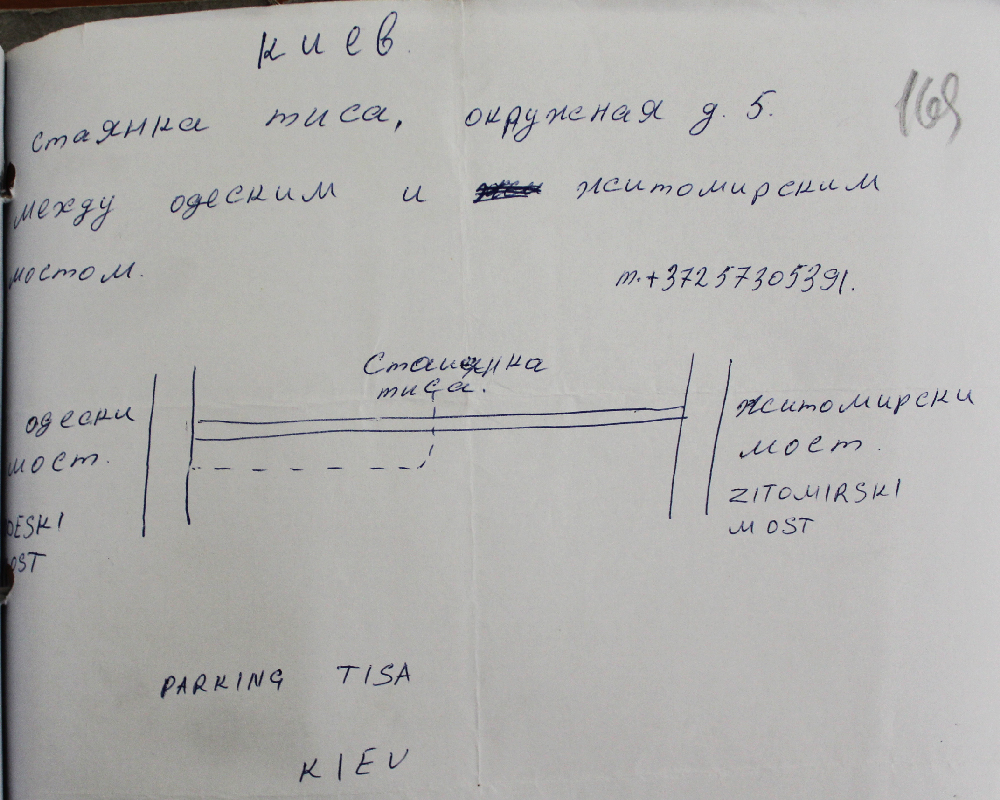 киев.
169
стаянка тиса, окружная д. 5.
между одеским и житомирским
мостом.
т.+37257305391.
Стаянка
тиса.
одески
мост.
DESKI
OST
житомирски
мост.
ZITOMIRSKI
MOST
PARKING TISA
KIEV